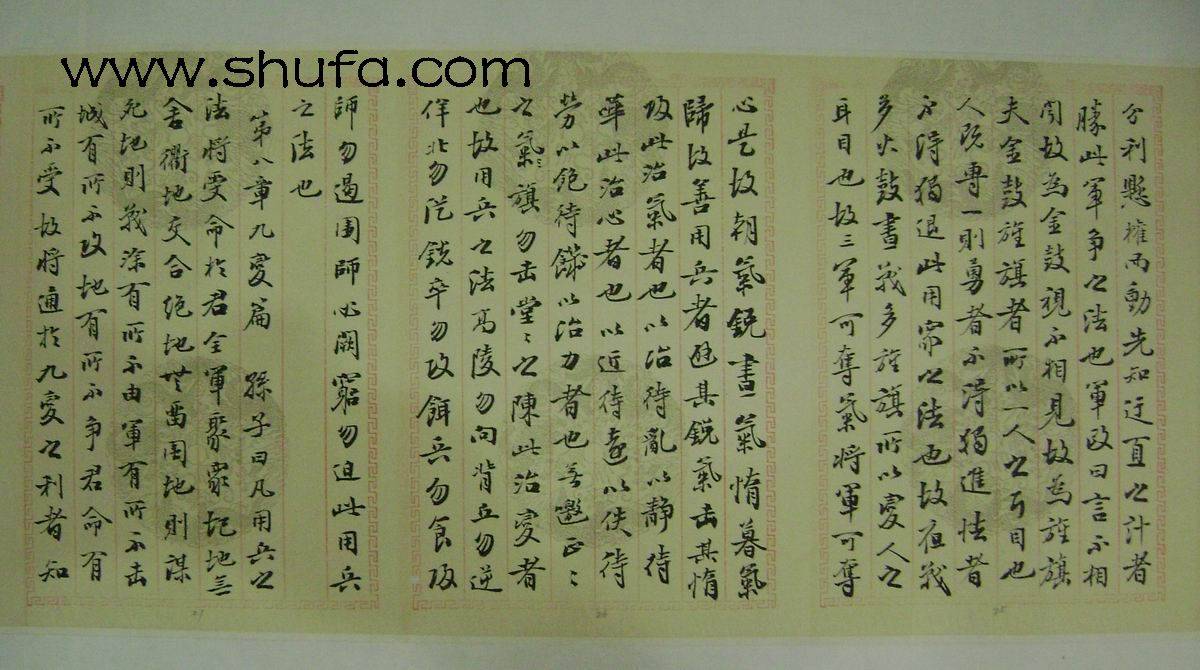 www.shufa.com
分利懸權而動先知迂直之計者
勝此軍爭之法也軍政曰言不相
聞故為金鼓視不相見故為旌旗
夫金鼓旌旗者所以一人之耳目也
人既專一則勇者不得獨進怯者
不得獨退此用眾之法也故夜戰
多火鼓晝戰多旌旗所以變人之
耳目也故三軍可奪氣將軍可奪
心是故朝氣銳晝氣惰暮氣
歸故善用兵者避其銳氣击其惰
歸此治氣者也以治待亂以靜待
譁此治心者也以近待遠以佚待
勞以飽待饑以治力者也無邀正〻
之氣〻旗勿击堂〻之陳此治變者
也故用兵之法高陵勿向背丘勿逆
佯北勿從銳卒勿攻餌兵勿食歸
師勿遏圍師必闕窮勿迫此用兵
之法也
第八章九變篇 孫子曰凡用兵之
法將受命於君合軍聚眾圮地無
舍衢地交合絕地無留圍地則謀
死地則戰塗有所不由軍有所不击
城有所不攻地有所不爭君命有
所不受故將通於九變之利者知
25
26
27